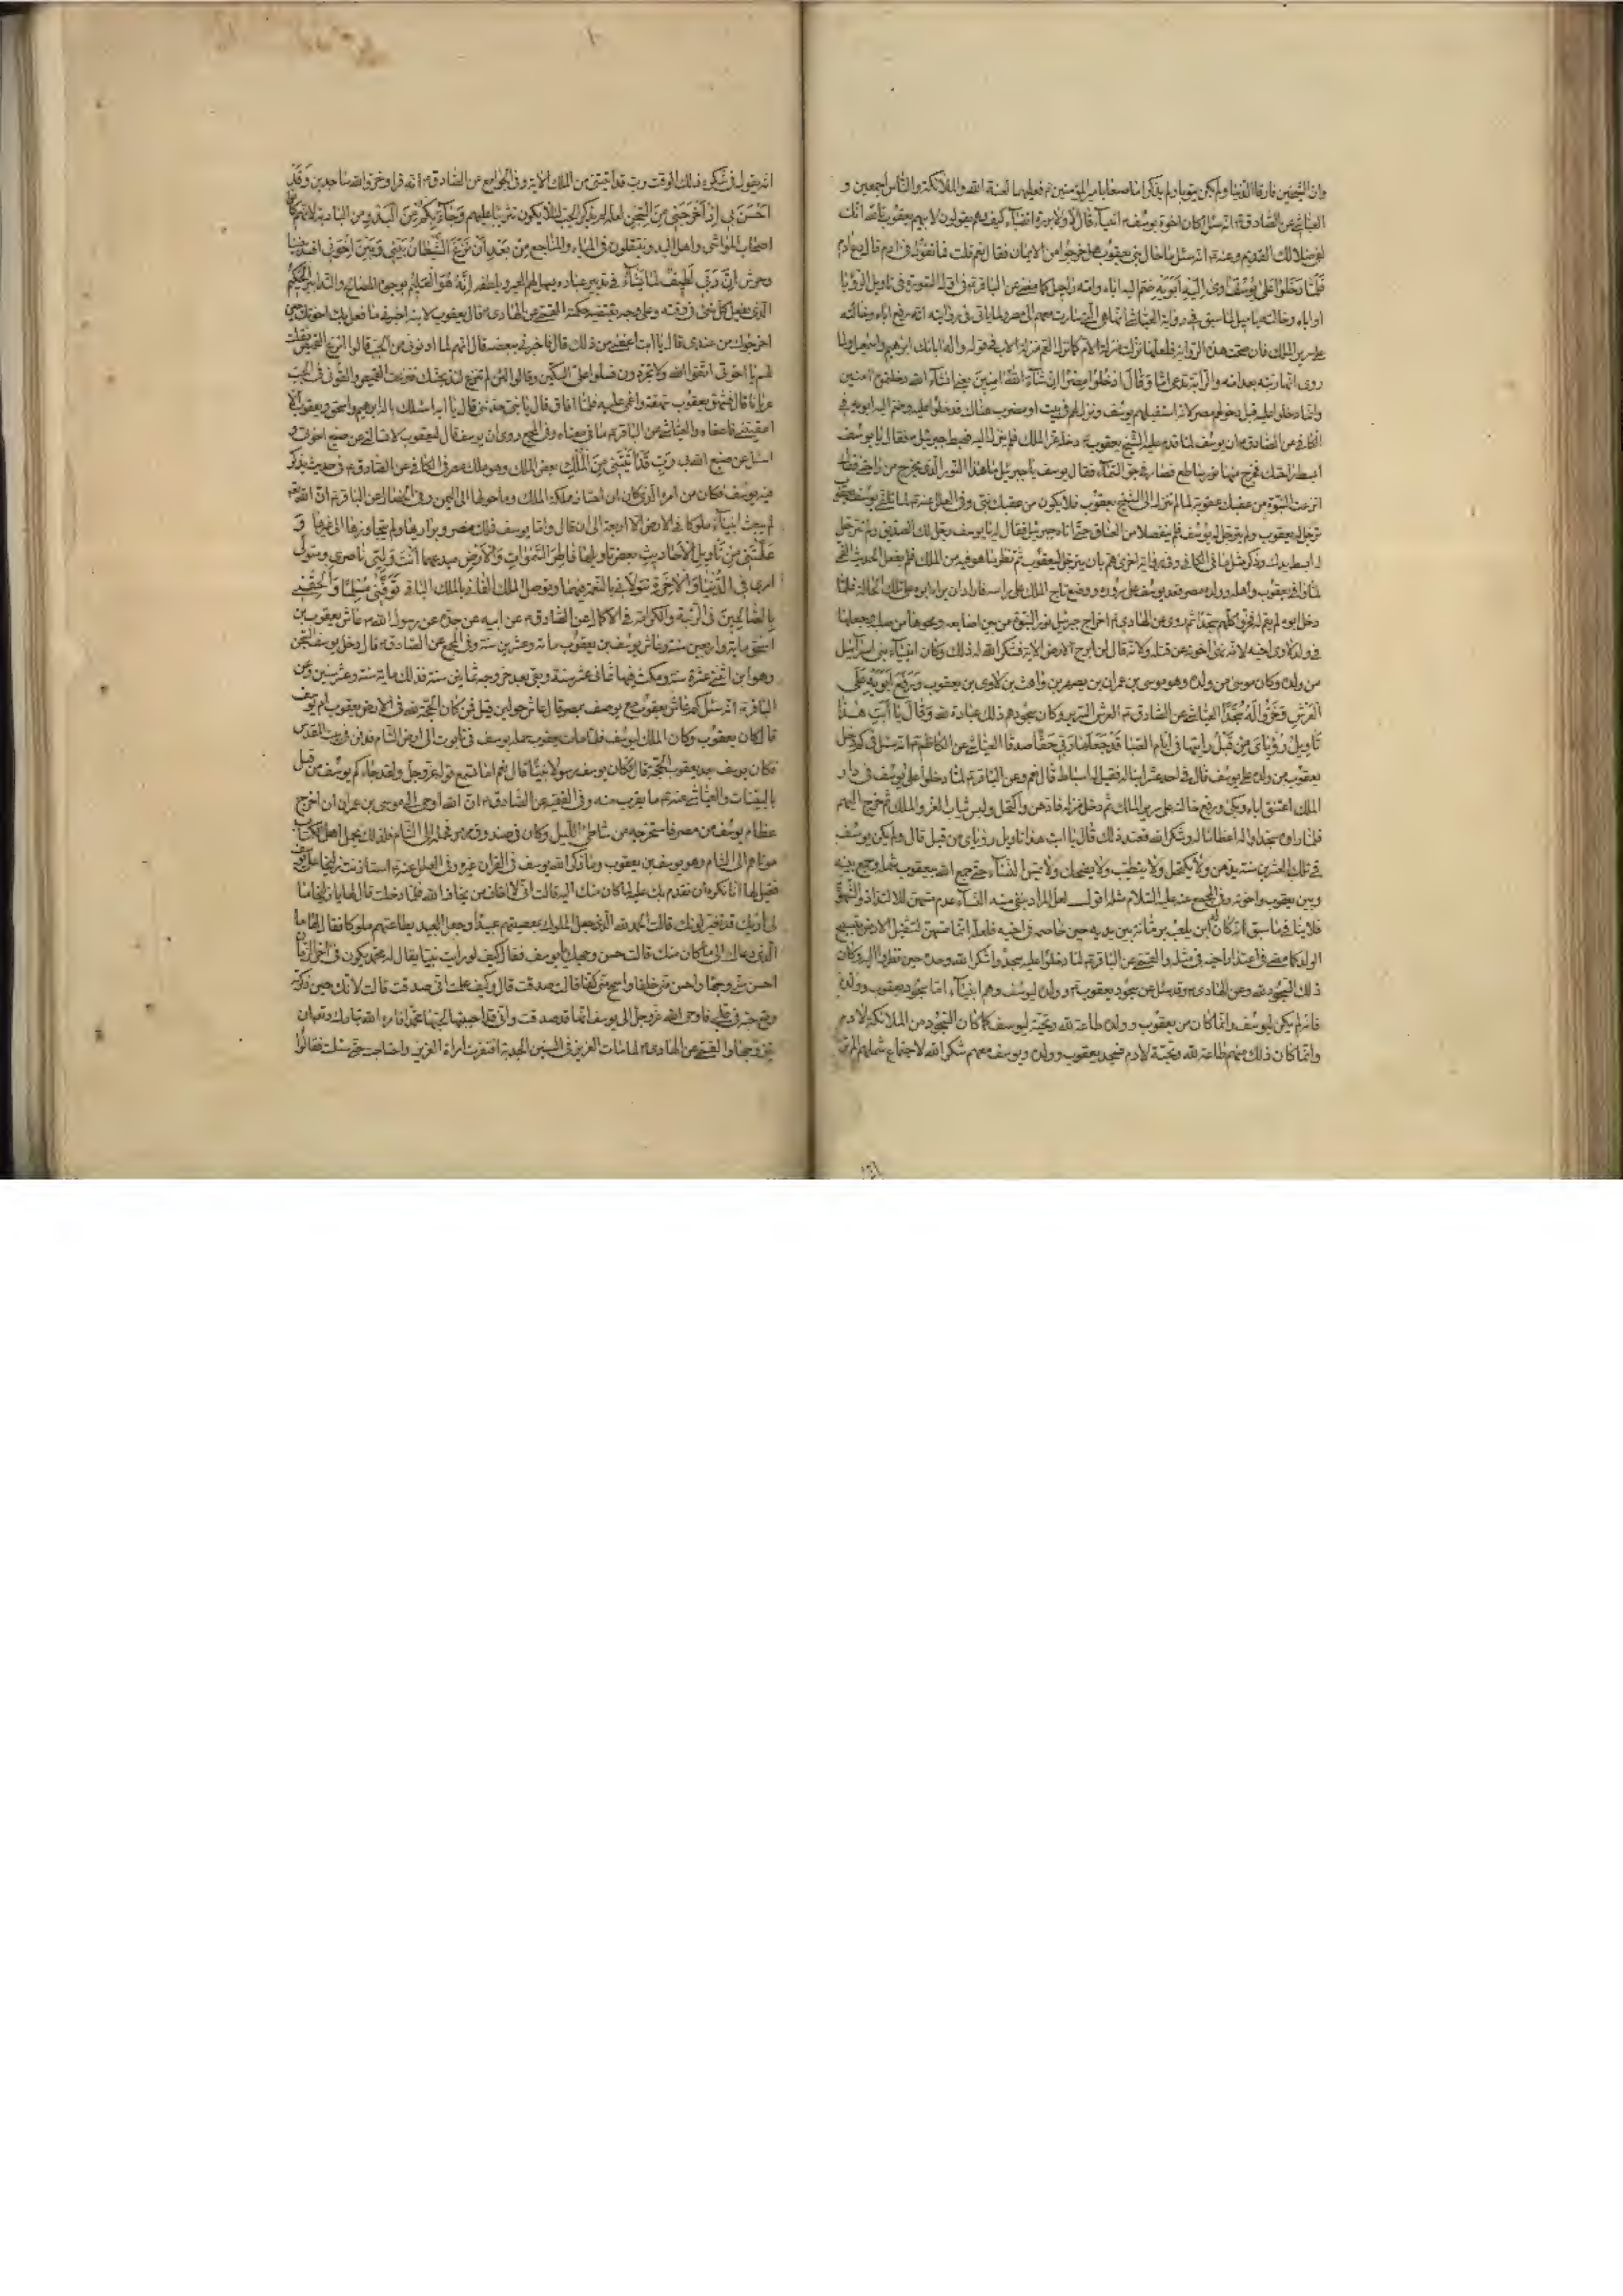 وان الشيخين فارقا الدنيا ولم يكن يتوبا ولم يذكرا ما صنعا بامير المؤمنين ع فعليهما لعنة الله والملائكة والناس اجمعين و
العياشي عن الصادق ع انه سئل كان اخوة يوسف ع انبياء قال لا ولا بررة اتقياء كيف وهم يقولون لابيهم يعقوب تالله انك
لفي ضلالك القديم وعنه ع انه سئل ما حال بني يعقوب هل خرجوا من الايمان فقال نعم قلت فما تقول في ادم قال دع ادم
فَلَمّا دَخَلُوا عَلى يُوسُفَ اوى اِلَيْهِ اَبَوَيْهِ ضم اليه اباه وامه راحيل كما مضى عن الباقر ع في اول السورة في تاويل الرؤيا
او اباه وخالته ياميل لما سبق في رواية العياشي انها هي التي سارت معهم الى مصر ولما ياتي في روايته انه رفع اباه وخالته
على سرير الملك فان صحت هذه الرواية فلعلها نزلت منزلة الام كما نزل العم منزلة الاب في قوله واله ابائك ابرهيم واسمعيل ولما
روى انها ربته بعد امه والرابة تدعى اما وَقالَ ادْخُلُوا مِصْرَ اِنْ شاءَ اللهُ امِنينَ
وانما دخلوا عليه قبل دخولهم مصر لانه استقبلهم يوسف ونزل لهم في بيت او مضرب هناك فدخلوا عليه وضم اليه ابويه في
الكافي عن الصادق ع ان يوسف لما قدم عليه الشيخ يعقوب ع دخله عز الملك فلم ينزل اليه فهبط جبرئيل ع فقال يا يوسف
ابسط راحتك فخرج منها نور ساطع فصار في جو السماء فقال يوسف يا جبرئيل ما هذا النور الذي يخرج من راحتي فقال
نزعت النبوة من عقبك عقوبة لما لم تنزل الى الشيخ يعقوب فلا يكون من عقبك نبي وفي العلل عنه ع لما تلقى يوسف يعقوب
ترجل له يعقوب ولم يترجل له يوسف فلم ينفصلا من العناق حتى اتاه جبرئيل فقال له يا يوسف ترجل لك الصديق ولم تترجل
له ابسط يدك وذكر مثل ما في الكافي وفي رواية اخرى هم بان يترجل ليعقوب ثم نظر الى ما هو فيه من الملك فلم يفعل الحديث القمي
لما وافى يعقوب واهله وولده مصر قعد يوسف على سريره ووضع تاج الملك على راسه فاراد ان يراه ابوه على تلك الحالة فلما
دخل ابوه لم يقم له فخروا كلهم سجدا ثم روى عن الهادي ع اخراج جبرئيل نور النبوة من بين اصابعه ومحوها من صلبه وجعلها
في ولد لاوي اخيه لانه نهى اخوته عن قتله ولانه قال لن ابرح الارض الاية فشكر الله له ذلك وكان انبياء بني اسرائيل
من ولده وكان موسى من ولده وهو موسى بن عمران بن يصهر بن واهث بن لاوي بن يعقوب وَرَفَعَ اَبَوَيْهِ عَلَى
الْعَرْشِ وَخَرُّوا لَهُ سُجَّدًا العياشي عن الصادق ع العرش السرير وكان سجودهم ذلك عبادة لله وَقالَ يا اَبَتِ هذا
تَاْويلُ رُؤْيايَ مِنْ قَبْلُ رايتها في ايام الصبا قَدْ جَعَلَها رَبّي حَقًّا صدقا العياشي عن الكاظم ع انه سئل في كم دخل
يعقوب من ولده على يوسف قال في احد عشر ابنا له فقيل له اسباط قال نعم وعن الباقر ع لما دخلوا على يوسف في دار
الملك اعتنق اباه وبكى ورفع خالته على سرير الملك ثم دخل منزله فادهن واكتحل ولبس ثياب العز والملك ثم خرج اليهم
فلما راوه سجدوا له اعظاما له وشكرا لله فعند ذلك قال يا ابت هذا تاويل رؤياي من قبل قال ولم يكن يوسف
في تلك العشرين سنة يدهن ولا يكتحل ولا يتطيب ولا يضحك ولا يمس النساء حتى جمع الله ليعقوب شمله وجمع بينه
وبين يعقوب واخوته وفي المجمع عنه عليه السلام مثله اقول لعل المراد بنفي مسه النساء عدم مسهن للالتذاذ والشهوة
فلا ينافي ما سبق انه كان له ابن يلعب برمانة بين يديه حين خاصمه في اخيه فلعله انما مسهن لتثقيل الارض بتسبيح
الولد كما مضى في اعتذار اخيه في مثله والقمي عن الباقر ع لما دخلوا عليه سجدوا شكرا لله وحده حين نظروا اليه وكان
ذلك السجود لله وعن الهادي ع وقد سئل عن سجود يعقوب ع وولده ليوسف وهم انبياء اما سجود يعقوب وولده
فانه لم يكن ليوسف وانما كان من يعقوب وولده طاعة لله وتحية ليوسف كما كان السجود من الملائكة لادم
وانما كان ذلك منهم طاعة لله وتحية لادم فسجد يعقوب وولده ويوسف معهم شكرا لله لاجتماع شملهم الم تر
انه يقول في شكره ذلك الوقت رب قد اتيتني من الملك الاية وفي الجوامع عن الصادق ع انه قرا وخروا لله ساجدين وَقَدْ
اَحْسَنَ بي اِذْ اَخْرَجَني مِنَ السِّجْنِ لعله لم يذكر الجب لئلا يكون تثريبا عليهم وَجاءَ بِكُمْ مِنَ الْبَدْوِ من البادية لانهم كانوا
اصحاب المواشي واهل البدو ينتقلون في المياه والمناجع مِنْ بَعْدِ اَنْ نَزَغَ الشَّيْطانُ بَيْني وَبَيْنَ اِخْوَتي افسد بيننا
وحرش اِنَّ رَبّي لَطيفٌ لِما يَشاءُ في تدبير عباده يسهل لهم العسير وبلطفه اِنَّهُ هُوَ الْعَليمُ بوجوه المصالح والتدابير الْحَكيمُ
الذي يفعل كل شيء في وقته وعلى وجه يقتضيه حكمة القمي عن الهادي ع قال يعقوب لابنه اخبرني ما فعل بك اخوتك حين
اخرجوك من عندي قال يا ابت اعفني من ذلك قال فاخبرني ببعضه قال انهم لما ادنوني من الجب قالوا انزع القميص فقلت
لهم يا اخوتي اتقوا الله ولا تجردوني فسلوا على السكين وقالوا لئن لم تنزع لنذبحنك فنزعت القميص والقوني في الجب
عريانا قال فشهق يعقوب شهقة واغمي عليه فلما افاق قال يا بني حدثني قال يا ابه اسئلك باله ابرهيم واسحق ويعقوب الا
اعفيتني فاعفاه والعياشي عن الباقر ع ما في معناه وفي المجمع روى ان يوسف قال ليعقوب لا تسالني عن صنيع اخوتي و
اسئل عن صنع الله بي رَبِّ قَدْ اتَيْتَني مِنَ الْمُلْكِ بعض الملك وهو ملك مصر في الكافي عن الصادق ع في حديث يذكر
فيه يوسف فكان من امره الذي كان ان اختار مملكة الملك وما حولها الى اليمن وفي الخصال عن الباقر ع ان الله تعالى
لم يبعث انبياء ملوكا في الارض الا اربعة الى ان قال واما يوسف فملك مصر وبراريها ولم يتجاوزها الى غيرها وَ
عَلَّمْتَني مِنْ تَاْويلِ الْاَحاديثِ بعض تاويلها فاطِرَ السَّمواتِ وَالْاَرْضِ مبدعهما اَنْتَ وَلِيّي ناصري ومتولي
امري فِي الدُّنْيا وَالْاخِرَةِ تتولاني بالنعمة فيهما وتوصل الملك الفاني بالملك الباقي تَوَفَّني مُسْلِمًا وَاَلْحِقْني
بِالصّالِحينَ في الرتبة والكرامة في الاكمال عن الصادق ع عن ابيه عن جده عن رسول الله ص عاش يعقوب بن
اسحق ماية واربعين سنة وعاش يوسف بن يعقوب مائة وعشرين سنة وفي المجمع عن الصادق ع قال دخل يوسف السجن
وهو ابن اثنتي عشرة سنة ومكث فيها ثماني عشر سنة وبقي بعد خروجه ثمانين سنة فذلك ماية سنة وعشر سنين وعن
الباقر ع انه سئل كم عاش يعقوب مع يوسف بمصر قال عاش حولين قيل فمن كان الحجة لله في الارض يعقوب ام يوسف
قال كان يعقوب وكان الملك ليوسف فلما مات يعقوب حمله يوسف في تابوت الى ارض الشام فدفن في بيت المقدس
فكان يوسف بعد يعقوب الحجة قال وكان يوسف رسولا نبيا قال نعم اما تسمع قوله عز وجل ولقد جاءكم يوسف من قبل
بالبينات والعياشي عنه ع ما يقرب منه وفي الفقيه عن الصادق ع ان الله اوحى الى موسى بن عمران ان اخرج
عظام يوسف من مصر فاستخرجه من شاطئ النيل وكان في صندوق مرمر فحمله الى الشام فلذلك يحمل اهل الكتاب
موتاهم الى الشام وهو يوسف بن يعقوب وما ذكر الله يوسف في القران غيره وفي العلل عنه ع استاذنت زليخا على يوسف
فقيل لها انا نكره ان نقدم بك عليه لما كان منك اليه قالت اني لا اخاف من يخاف الله فلما دخلت قال لها يا زليخا ما
لي اريك قد تغير لونك قالت الحمد لله الذي جعل الملوك بمعصيتهم عبيدا وجعل العبيد بطاعتهم ملوكا فقال لها ما
الذي دعاك الى ما كان منك قالت حسن وجهك يا يوسف فقال كيف لو رايت نبيا يقال له محمد يكون في اخر الزمان
احسن مني وجها واحسن مني خلقا واسمح مني كفا قالت صدقت قال وكيف علمت اني صدقت قالت لانك حين ذكرته
وقع حبه في قلبي فاوحى الله عز وجل الى يوسف انها قد صدقت واني قد احببتها لحبها محمدا فامره الله تبارك وتعالى ان
يتزوجها والقمي عن الهادي ع لما مات العزيز في السنين الجدبة افتقرت امراة العزيز واحتاجت حتى سئلت فقالوا